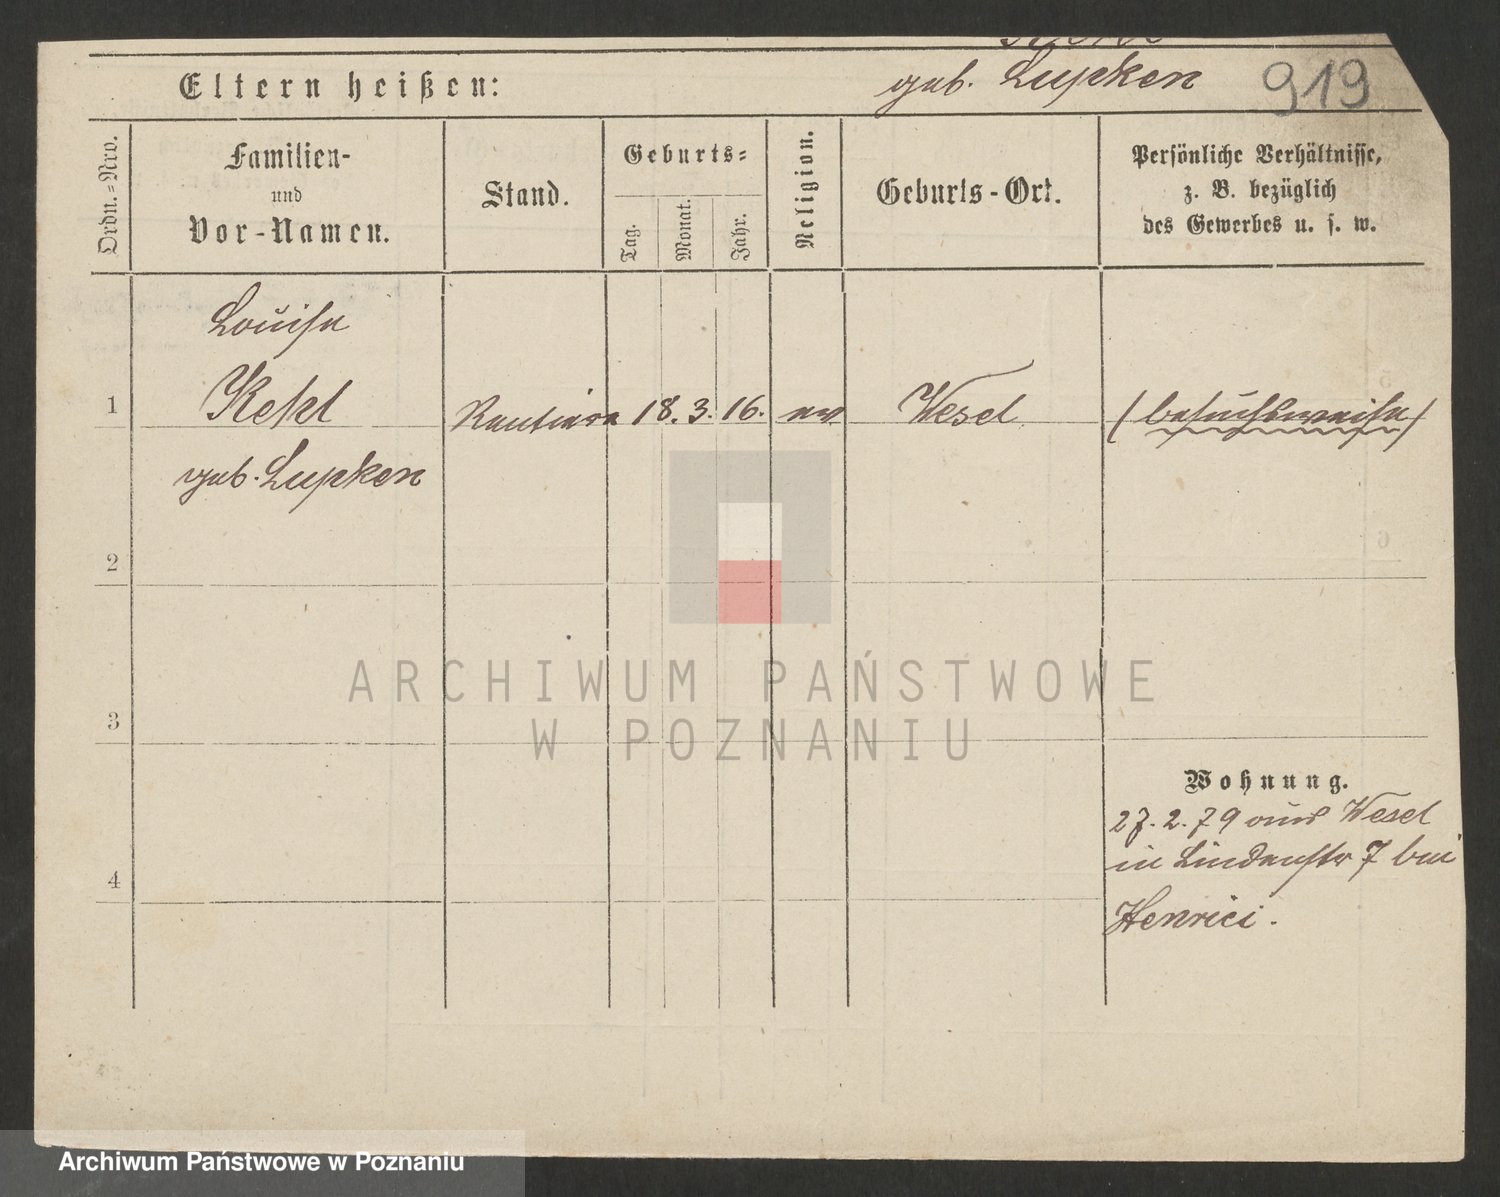 Eltern heißen:
geb. Lupken
919
Ordn.=Nro.
Familien-
und
Vor-Namen.
Stand.
Geburts=
Tag.
Monat.
Jahr.
Religion.
Geburts-Ort.
Persönliche Verhältnisse,
z. B. bezüglich
des Gewerbes u. s. w.
Louise
1 Rentiere 18. 3. 16. ev Wesel (besuchsweise)
geb. Lupken
2
3
4
Wohnung.
27. 2. 79 aus Wesel
in Lindenstr 7 bei
Henrici.
ARCHIWUM PAŃSTWOWE
W POZNANIU
Archiwum Państwowe w Poznaniu